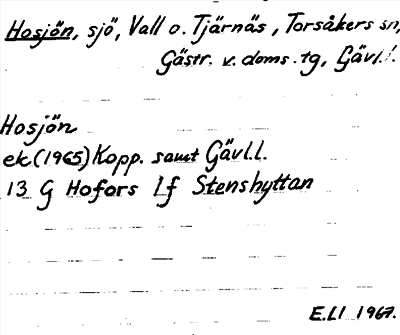 Hosjön, sjö, Vall o. Tjärnäs, Torsåkers sn,
Gästr. v. doms. tg, Gävl. l.
Hosjön
ek (1965) Kopp. samt Gävl.l.
13 G Hofors 1f Stenshyttan
E.Ll 1967.